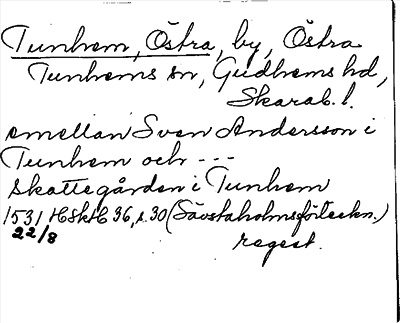 Tunhem, Östra, by, Östra
Tunhems sn, Gudhems hd,
Skarab. l.
emellan Sven Andersson i
Tunhem och ---
skattegården i Tunhem
1531 HSkH 36, s. 30 (Sävstaholmsförteckn.)
22/8 regest.